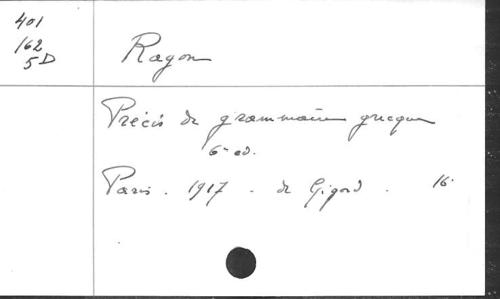 401
162
5D
Ragon
Précis de grammaire grecque
6e ed.
Paris . 1917 . de Gigord . 16.